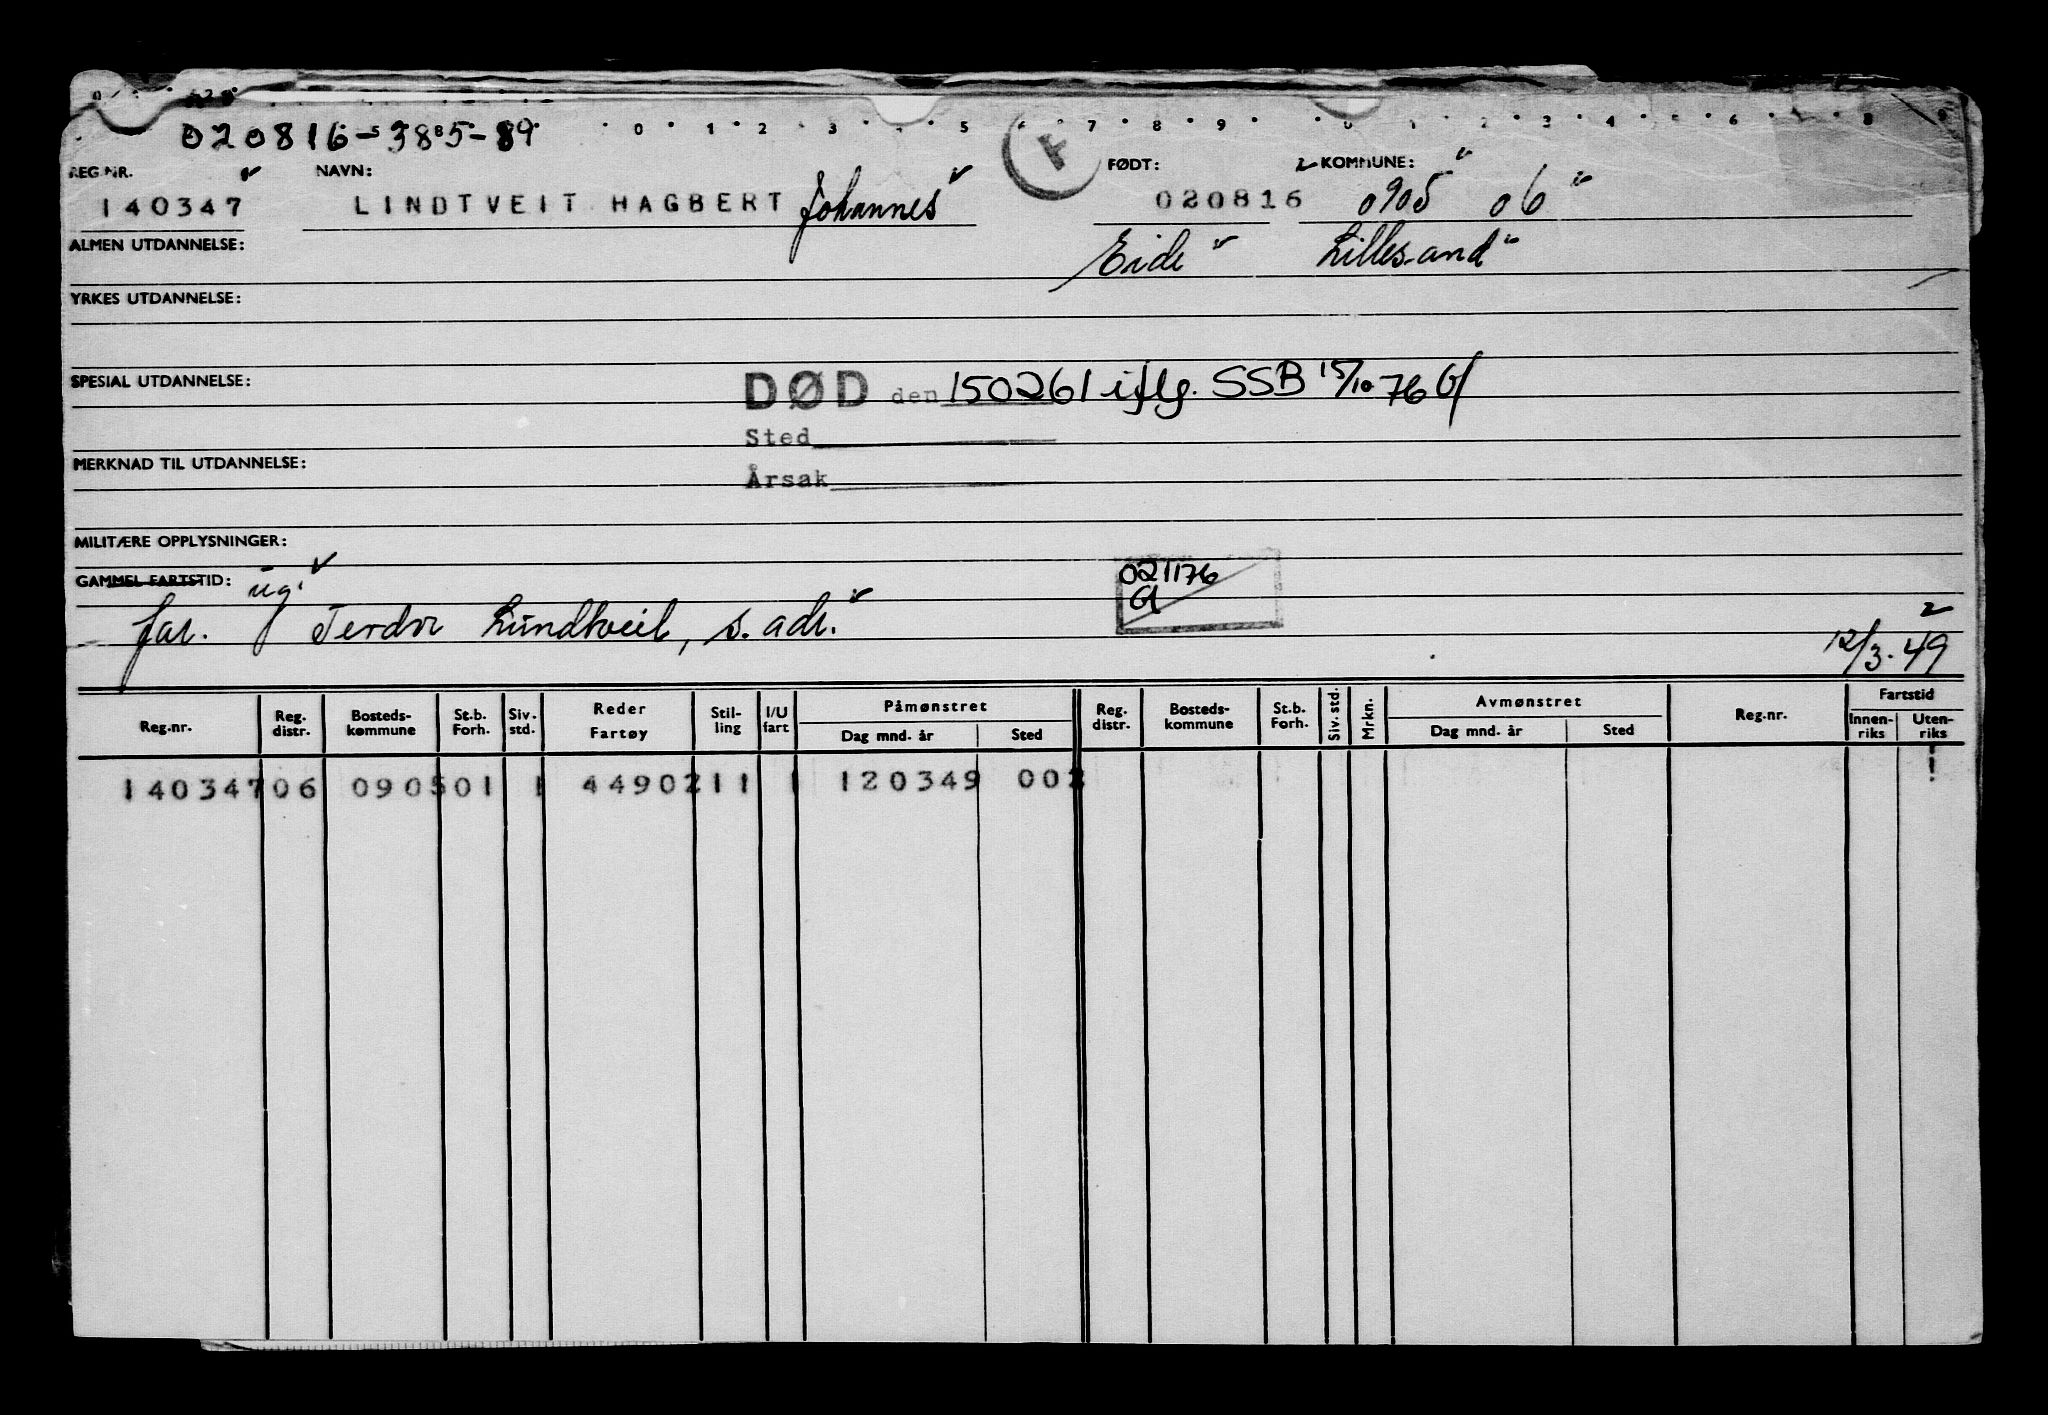 020816-38585-89
0 1 2 3 5 7 8 9 1 2 3 4 5 6 8 9
F
REG.NR. NAVN: FØDT: KOMMUNE:
140347 LINDTVEIT HAGBERT Johannes 020816 0905 06
ALMEN UTDANNELSE: Eide Lillesand
YRKES UTDANNELSE:
SPESIAL UTDANNELSE: DØD den 150261 iflg. SSB 15/10 76
Sted
MERKNAD TIL UTDANNELSE:
Årsak
MILITÆRE OPPLYSNINGER:
GAMMEL FARTSTID: ug. 021176
far. Lundtveit, s. adr. 12/3.49
Reg.nr. Reg. distr. Bosteds-kommune St.b. Forh. Siv. std. Reder Fartøy Stil-ling I/U fart Påmønstret Dag mnd. år Sted Reg. distr. Bosteds-kommune St.b. Forh. Siv. std. Mrkn. Avmønstret Dag mnd. år Sted Reg.nr. Fartstid Innen-riks Uten-riks
140347 06 0905 01 1 4490211 1 120349 002